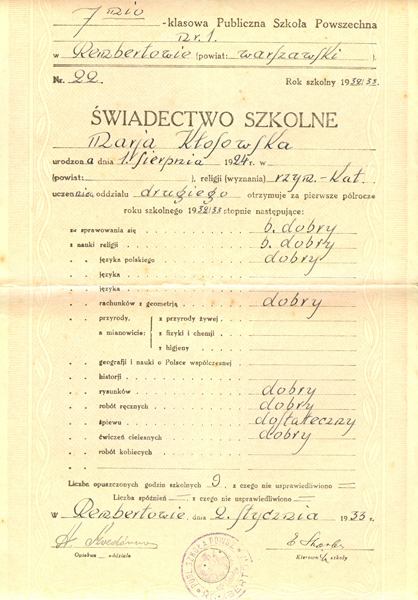 7 mio -klasowa Publiczna Szkoła Powszechna
Nr. 1.
w Rembertowie (powiat: warszawski)
Nr. 22 Rok szkolny 1932/33
ŚWIADECTWO SZKOLNE
Marja Kłosowska
urodzona dnia 1. sierpnia 1924 r. w
(powiat: ), religii (wyznania) rzym.-kat.
uczennica oddziału drugiego otrzymuje za pierwsze półrocze
roku szkolnego 1932/33 stopnie następujące:
ze sprawowania się b. dobry
z nauki religii b. dobry
" " języka polskiego dobry
" " języka
" " języka
" " rachunków z geometrją dobry
" " przyrody, z przyrody żywej
a mianowicie: z fizyki i chemji
z higjeny
" " geografji i nauki o Polsce współczesnej
" " historji
" " rysunków dobry
" " robót ręcznych dobry
" " śpiewu dostateczny
" " ćwiczeń cielesnych dobry
" " robót kobiecych
" "
Liczba opuszczonych godzin szkolnych 9, z czego nie usprawiedliwiono =
Liczba spóźnień =, z czego nie usprawiedliwiono =
w Rembertowie, dnia 2. stycznia 1933 r.
Opiekun oddziału Kierown. szkoły